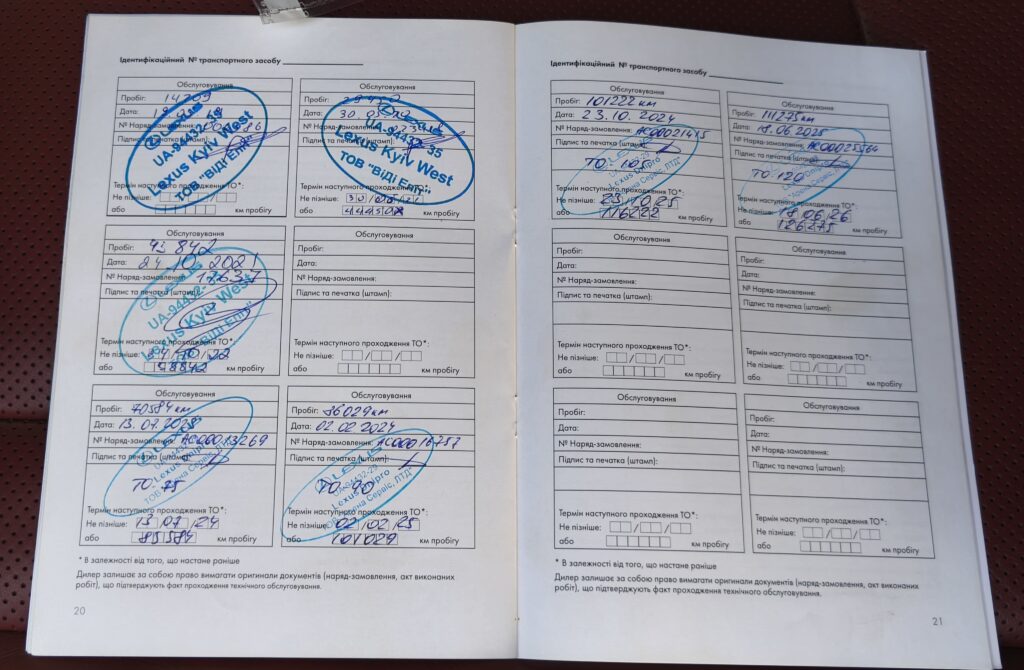 Ідентифікаційний № транспортного засобу
Обслуговування
Пробіг: 14209
Дата:
№ Наряд-замовлення:
Підпис та печатка
LEXUS
UA-94432-
Lexus Kyiv West
ТОВ "ВіДі Еліт"
Термін наступного проходження ТО*:
Не пізніше:
або км пробігу
Обслуговування
Пробіг:
Дата: 30.
№ Наряд-замовлення:
Підпис та
UA-94432-35
Lexus Kyiv West
ТОВ "ВіДі Еліт"
Термін наступного проходження ТО*:
Не пізніше:
або км пробігу
Обслуговування
Пробіг: 43 842
Дата: 24.10.2021
№ Наряд-замовлення: 17637
Підпис та печатка (штамп):
LEXUS
UA-94432-
Lexus Kyiv West
"ВіДі Еліт"
Термін наступного проходження ТО*:
Не пізніше: 24/10/22
або 58842 км пробігу
Обслуговування
Пробіг:
Дата:
№ Наряд-замовлення:
Підпис та печатка (штамп):
Термін наступного проходження ТО*:
Не пізніше:
або км пробігу
Обслуговування
Пробіг: 70584 км
Дата: 13.07.2023
№ Наряд-замовлення: АС00013269
Підпис та печатка
LEXUS
Lexus Dnipro
ТО-75
Термін наступного проходження ТО*:
Не пізніше: 13/07/24
або 85584 км пробігу
Обслуговування
Пробіг: 86029 км
Дата: 02.02.2024
№ Наряд-замовлення: АС00016757
Підпис та печатка (штамп):
LEXUS
UA-94432-29
Lexus Dnipro
ТО-90
Термін наступного проходження ТО*:
Не пізніше: 02/02/25
або 101029 км пробігу
* В залежності від того, що настане раніше
Дилер залишає за собою право вимагати оригинали документів (наряд-замовлення, акт виконаних
робіт), що підтверджують факт проходження технічного обслуговування.
20
Ідентифікаційний № транспортного засобу
Обслуговування
Пробіг: 101222 км
Дата: 23.10.2024
№ Наряд-замовлення: АС00021415
Підпис та печатка (штамп):
LEXUS
Lexus Dnipro
ТО-105
Термін наступного проходження ТО*:
Не пізніше: 23/10/25
або 116222 км пробігу
Обслуговування
Пробіг: 111275 км
Дата: 18.06.2025
№ Наряд-замовлення: АС00025564
Підпис та печатка
LEXUS
Lexus Dnipro
ТО-120
Термін наступного проходження ТО*:
Не пізніше: 18/06/26
або 126275 км пробігу
Обслуговування
Пробіг:
Дата:
№ Наряд-замовлення:
Підпис та печатка (штамп):
Термін наступного проходження ТО*:
Не пізніше:
або км пробігу
Обслуговування
Пробіг:
Дата:
№ Наряд-замовлення:
Підпис та печатка (штамп):
Термін наступного проходження ТО*:
Не пізніше:
або км пробігу
Обслуговування
Пробіг:
Дата:
№ Наряд-замовлення:
Підпис та печатка (штамп):
Термін наступного проходження ТО*:
Не пізніше:
або км пробігу
Обслуговування
Пробіг:
Дата:
№ Наряд-замовлення:
Підпис та печатка (штамп):
Термін наступного проходження ТО*:
Не пізніше:
або км пробігу
* В залежності від того, що настане раніше
Дилер залишає за собою право вимагати оригинали документів (наряд-замовлення, акт виконаних
робіт), що підтверджують факт проходження технічного обслуговування.
21